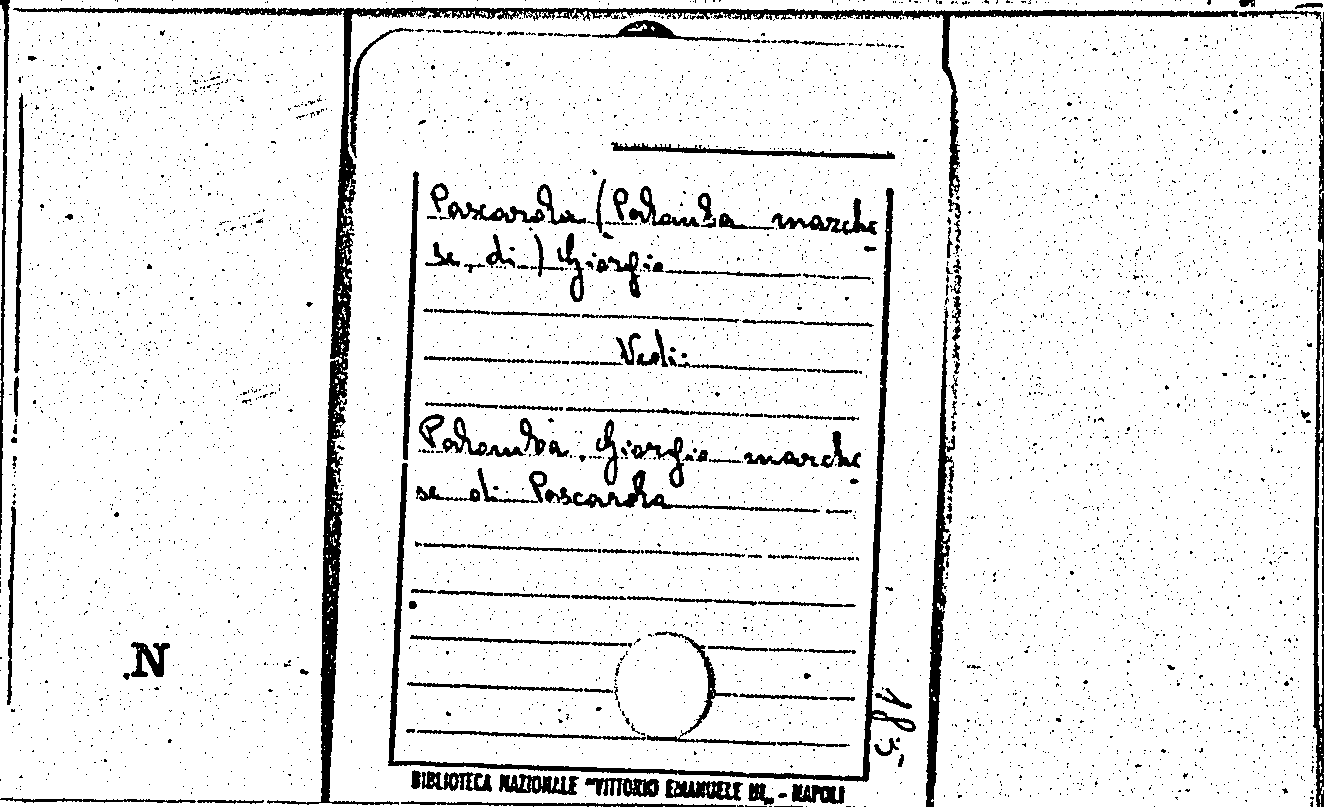 Pascarola (Palomba marche
se di) Giorgio
Vedi:
Palomba Giorgio marche
se di Pascarola
N
185
BIBLIOTECA NAZIONALE "VITTORIO EMANUELE III„ - NAPOLI